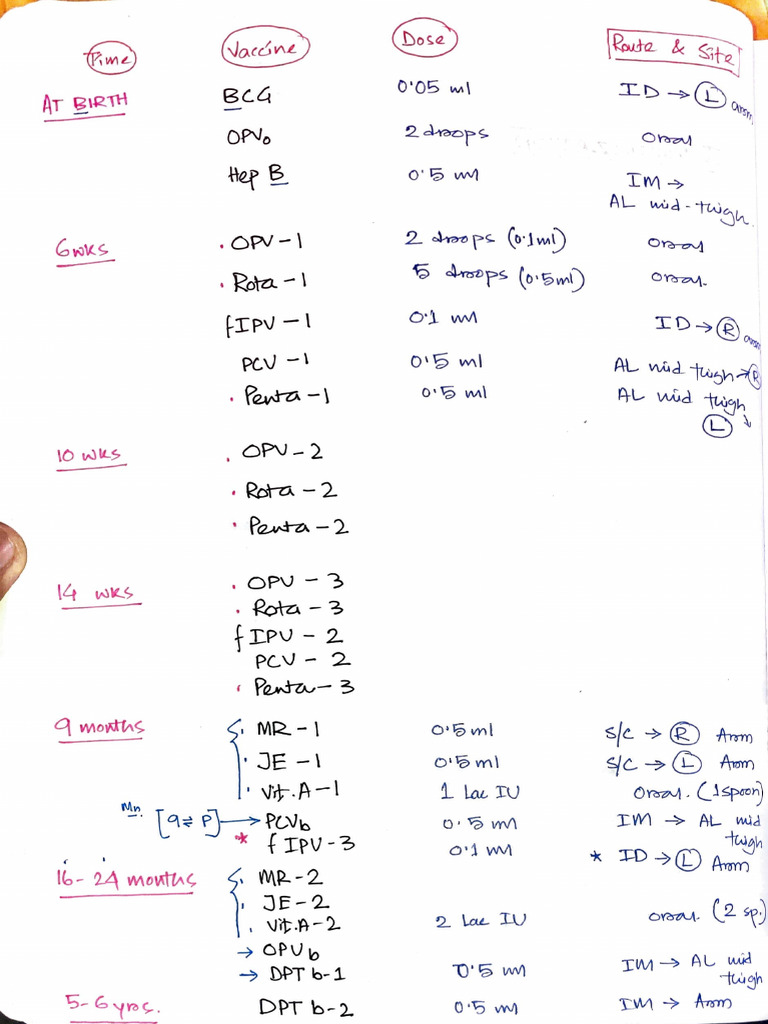 Time Vaccine Dose Route & Site
AT BIRTH BCG 0.05 ml ID → L arm
OPV0 2 drops oral
Hep B 0.5 ml IM →
AL mid-thigh.
6 wks . OPV-1 2 drops (0.1ml) oral
. Rota-1 5 drops (0.5ml) oral.
fIPV-1 0.1 ml ID → R arm
PCV-1 0.5 ml AL mid thigh → R
. Penta-1 0.5 ml AL mid thigh
L
10 wks . OPV-2
. Rota-2
. Penta-2
14 wks . OPV-3
. Rota-3
fIPV-2
PCV-2
. Penta-3
9 months . MR-1 0.5 ml S/C → R Arm
. JE-1 0.5 ml S/C → L Arm
. Vit.A-1 1 Lac IU oral. (1 spoon)
Mn. [9 ⇌ P] → PCVb 0.5 ml IM → AL mid thigh
* fIPV-3 0.1 ml * ID → L Arm
16-24 months . MR-2
. JE-2
. Vit.A-2 2 Lac IU oral. (2 sp.)
→ OPVb
→ DPT b-1 0.5 ml IM → AL mid thigh
5-6 yrs. DPT b-2 0.5 ml IM → Arm